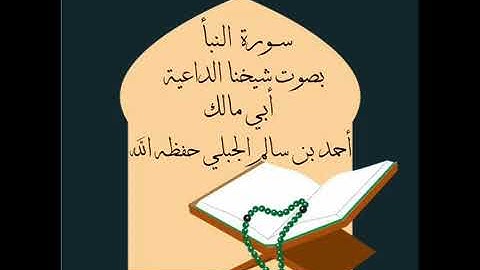 سورة النبأ
بصوت شيخنا الداعية
أبي مالك
أحمد بن سالم الجبلي حفظه الله